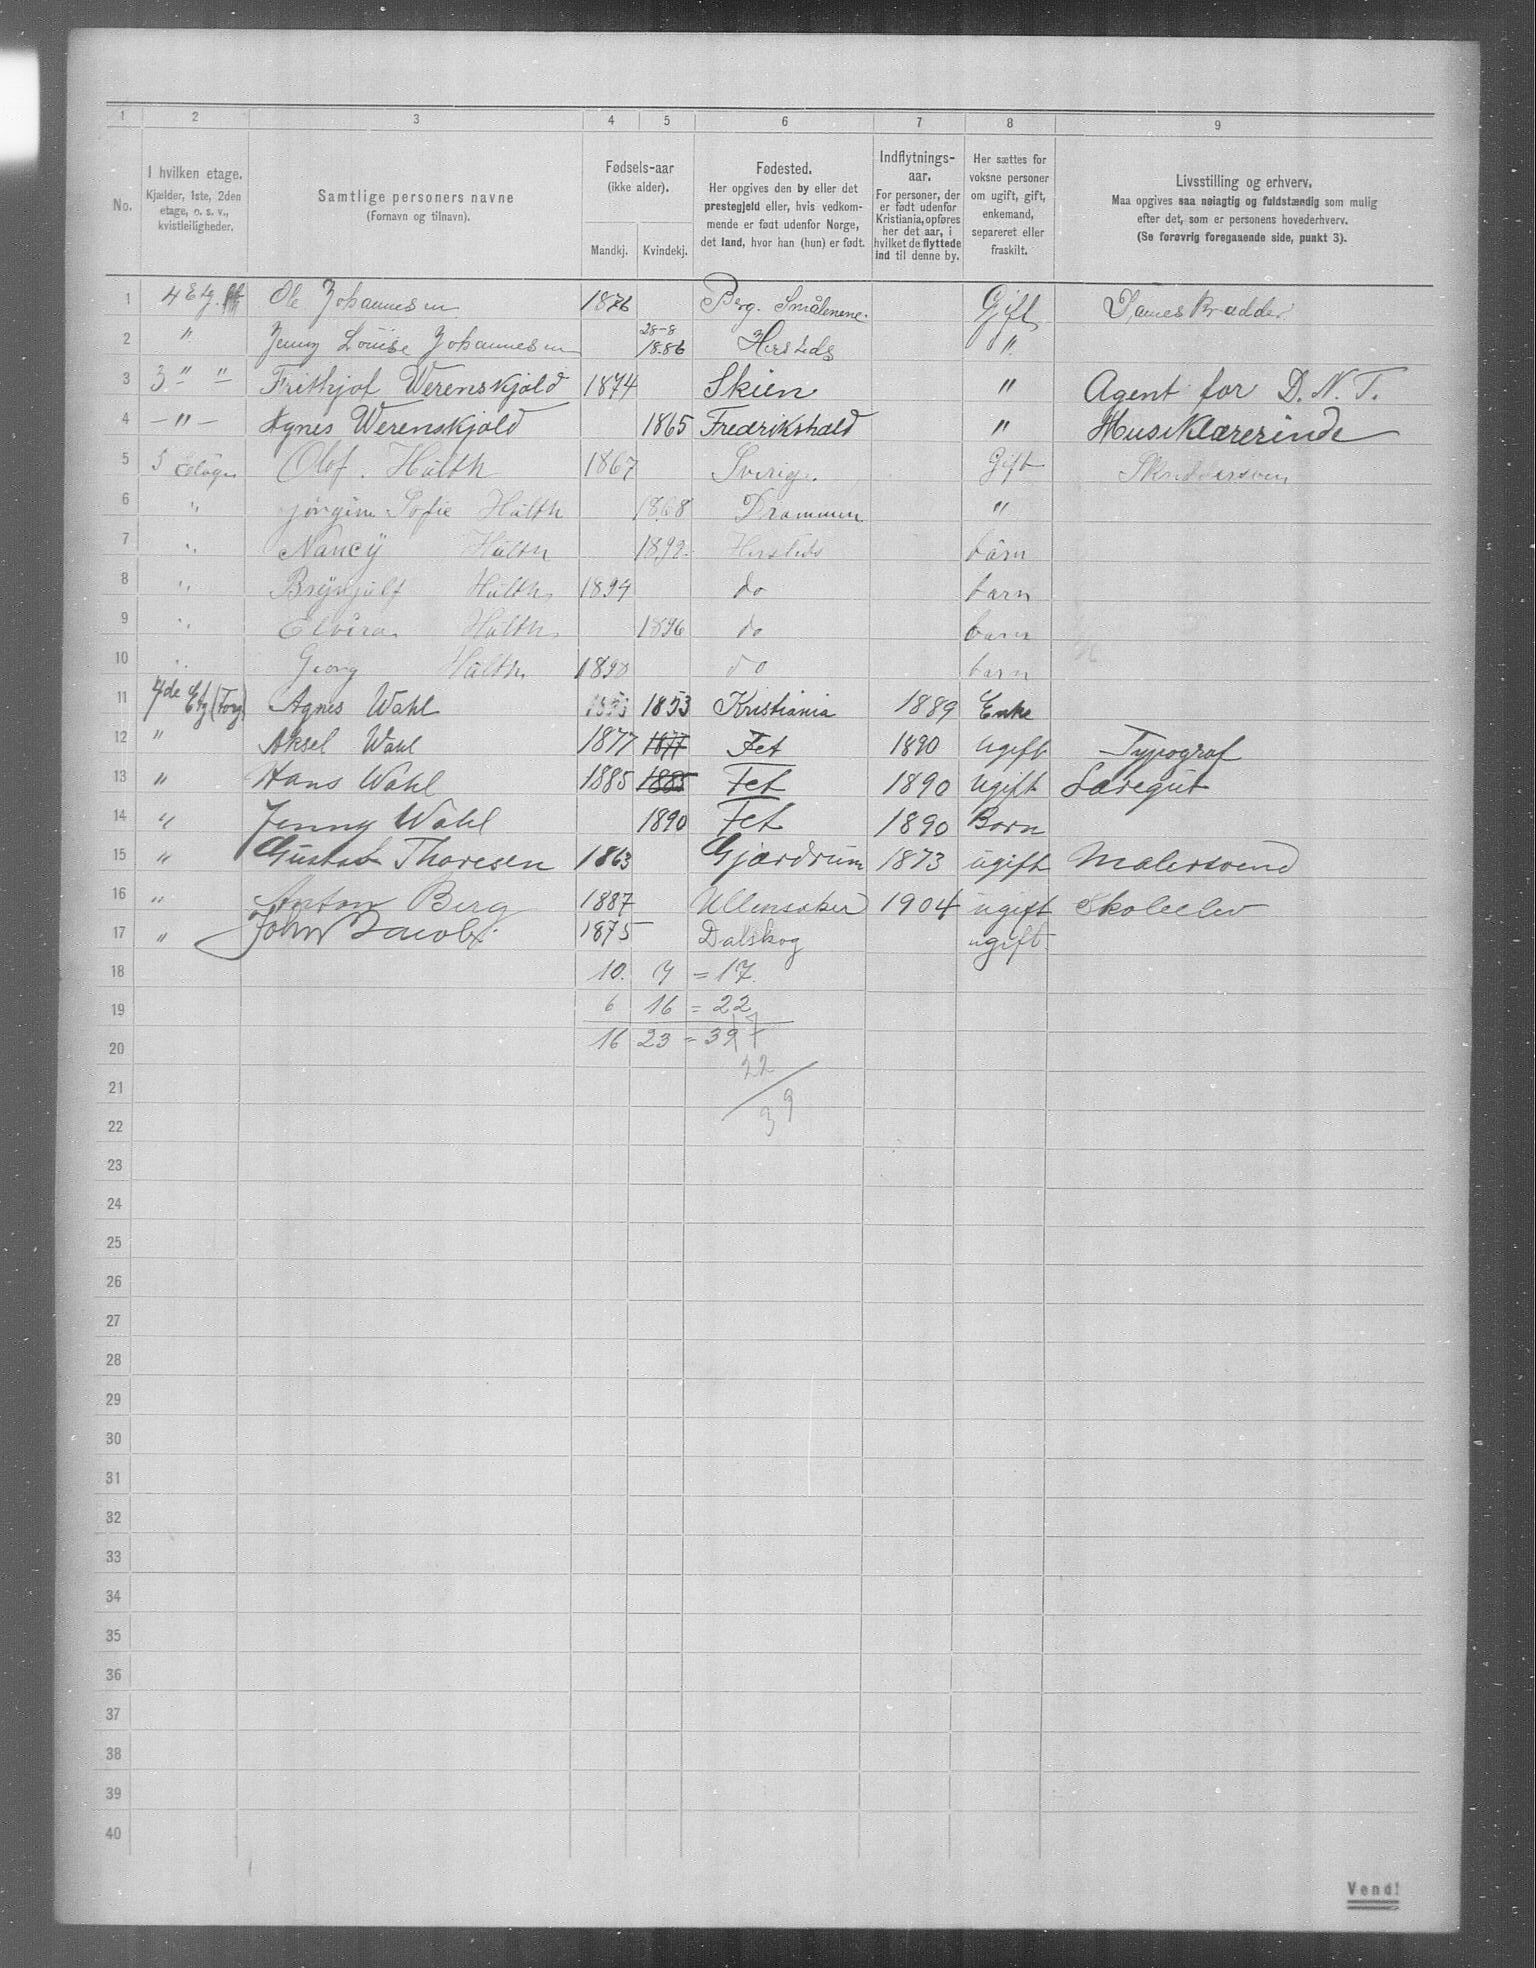 1 2 3 4 5 6 7 8 9
No.
I hvilken etage.
Kjælder, 1ste, 2den
etage, o. s. v.,
kvistleiligheder.
Samtlige personers navne
(Fornavn og tilnavn).
Fødsels-aar
(ikke alder).
Mandkj. Kvindekj.
Fødested.
Her opgives den by eller det
prestegjeld eller, hvis vedkom-
mende er født udenfor Norge,
det land, hvor han (hun) er født.
Indflytnings-
aar.
For personer, der
er født udenfor
Kristiania, opføres
her det aar, i
hvilket de flyttede
ind til denne by.
Her sættes for
voksne personer
om ugift, gift,
enkemand,
separeret eller
fraskilt.
Livsstilling og erhverv.
Maa opgives saa nøiagtig og fuldstændig som mulig
efter det, som er personens hovederhverv.
(Se forøvrig foregaaende side, punkt 3).
1 4 Etg. Ole Johannesen 1876 Berg. Smålenene. Gift
2 " Jenny Louise Johannesen 28-8 1886 "
3 3 " " Frithjof Werenskjold 1874 Skien " Agent for D. N. T.
4 - " - Agnes Werenskjold 1865 Fredrikshald " Musiklærerinde
5 Olof. Hülth 1867 Sverig. Gift
6 " Jørgine Sofie Hülth 1868 Drammen "
7 " Nancÿ Hülth 1892. barn
8 " Hülth 1894 do barn
9 " Elvira Hülth 1896 do barn
10 " Georg Hülth do barn
11 4de Etg (Torg) Agnes Wahl 1853 Kristiania 1889 Enke
12 " Aksel Wahl 1877 1877 Fet 1890 ugift Typograf
13 " Hans Wahl 1885 1885 Fet 1890 ugift Læregut
14 " Jenny Wahl 1890 Fet 1890 Born
15 " Gustav Thoresen 1863 Gjærdrum 1873 ugift Malersvend
16 " Anton Berg 1887 Ullensaker 1904 ugift Skoleelev
17 " John 1875 Dalskog ugift.
18 10. 7 = 17.
19 6 16 = 22
20 16 23 = 39 17
21 22
22 39
23
24
25
26
27
28
29
30
31
32
33
34
35
36
37
38
39
40
Vend!